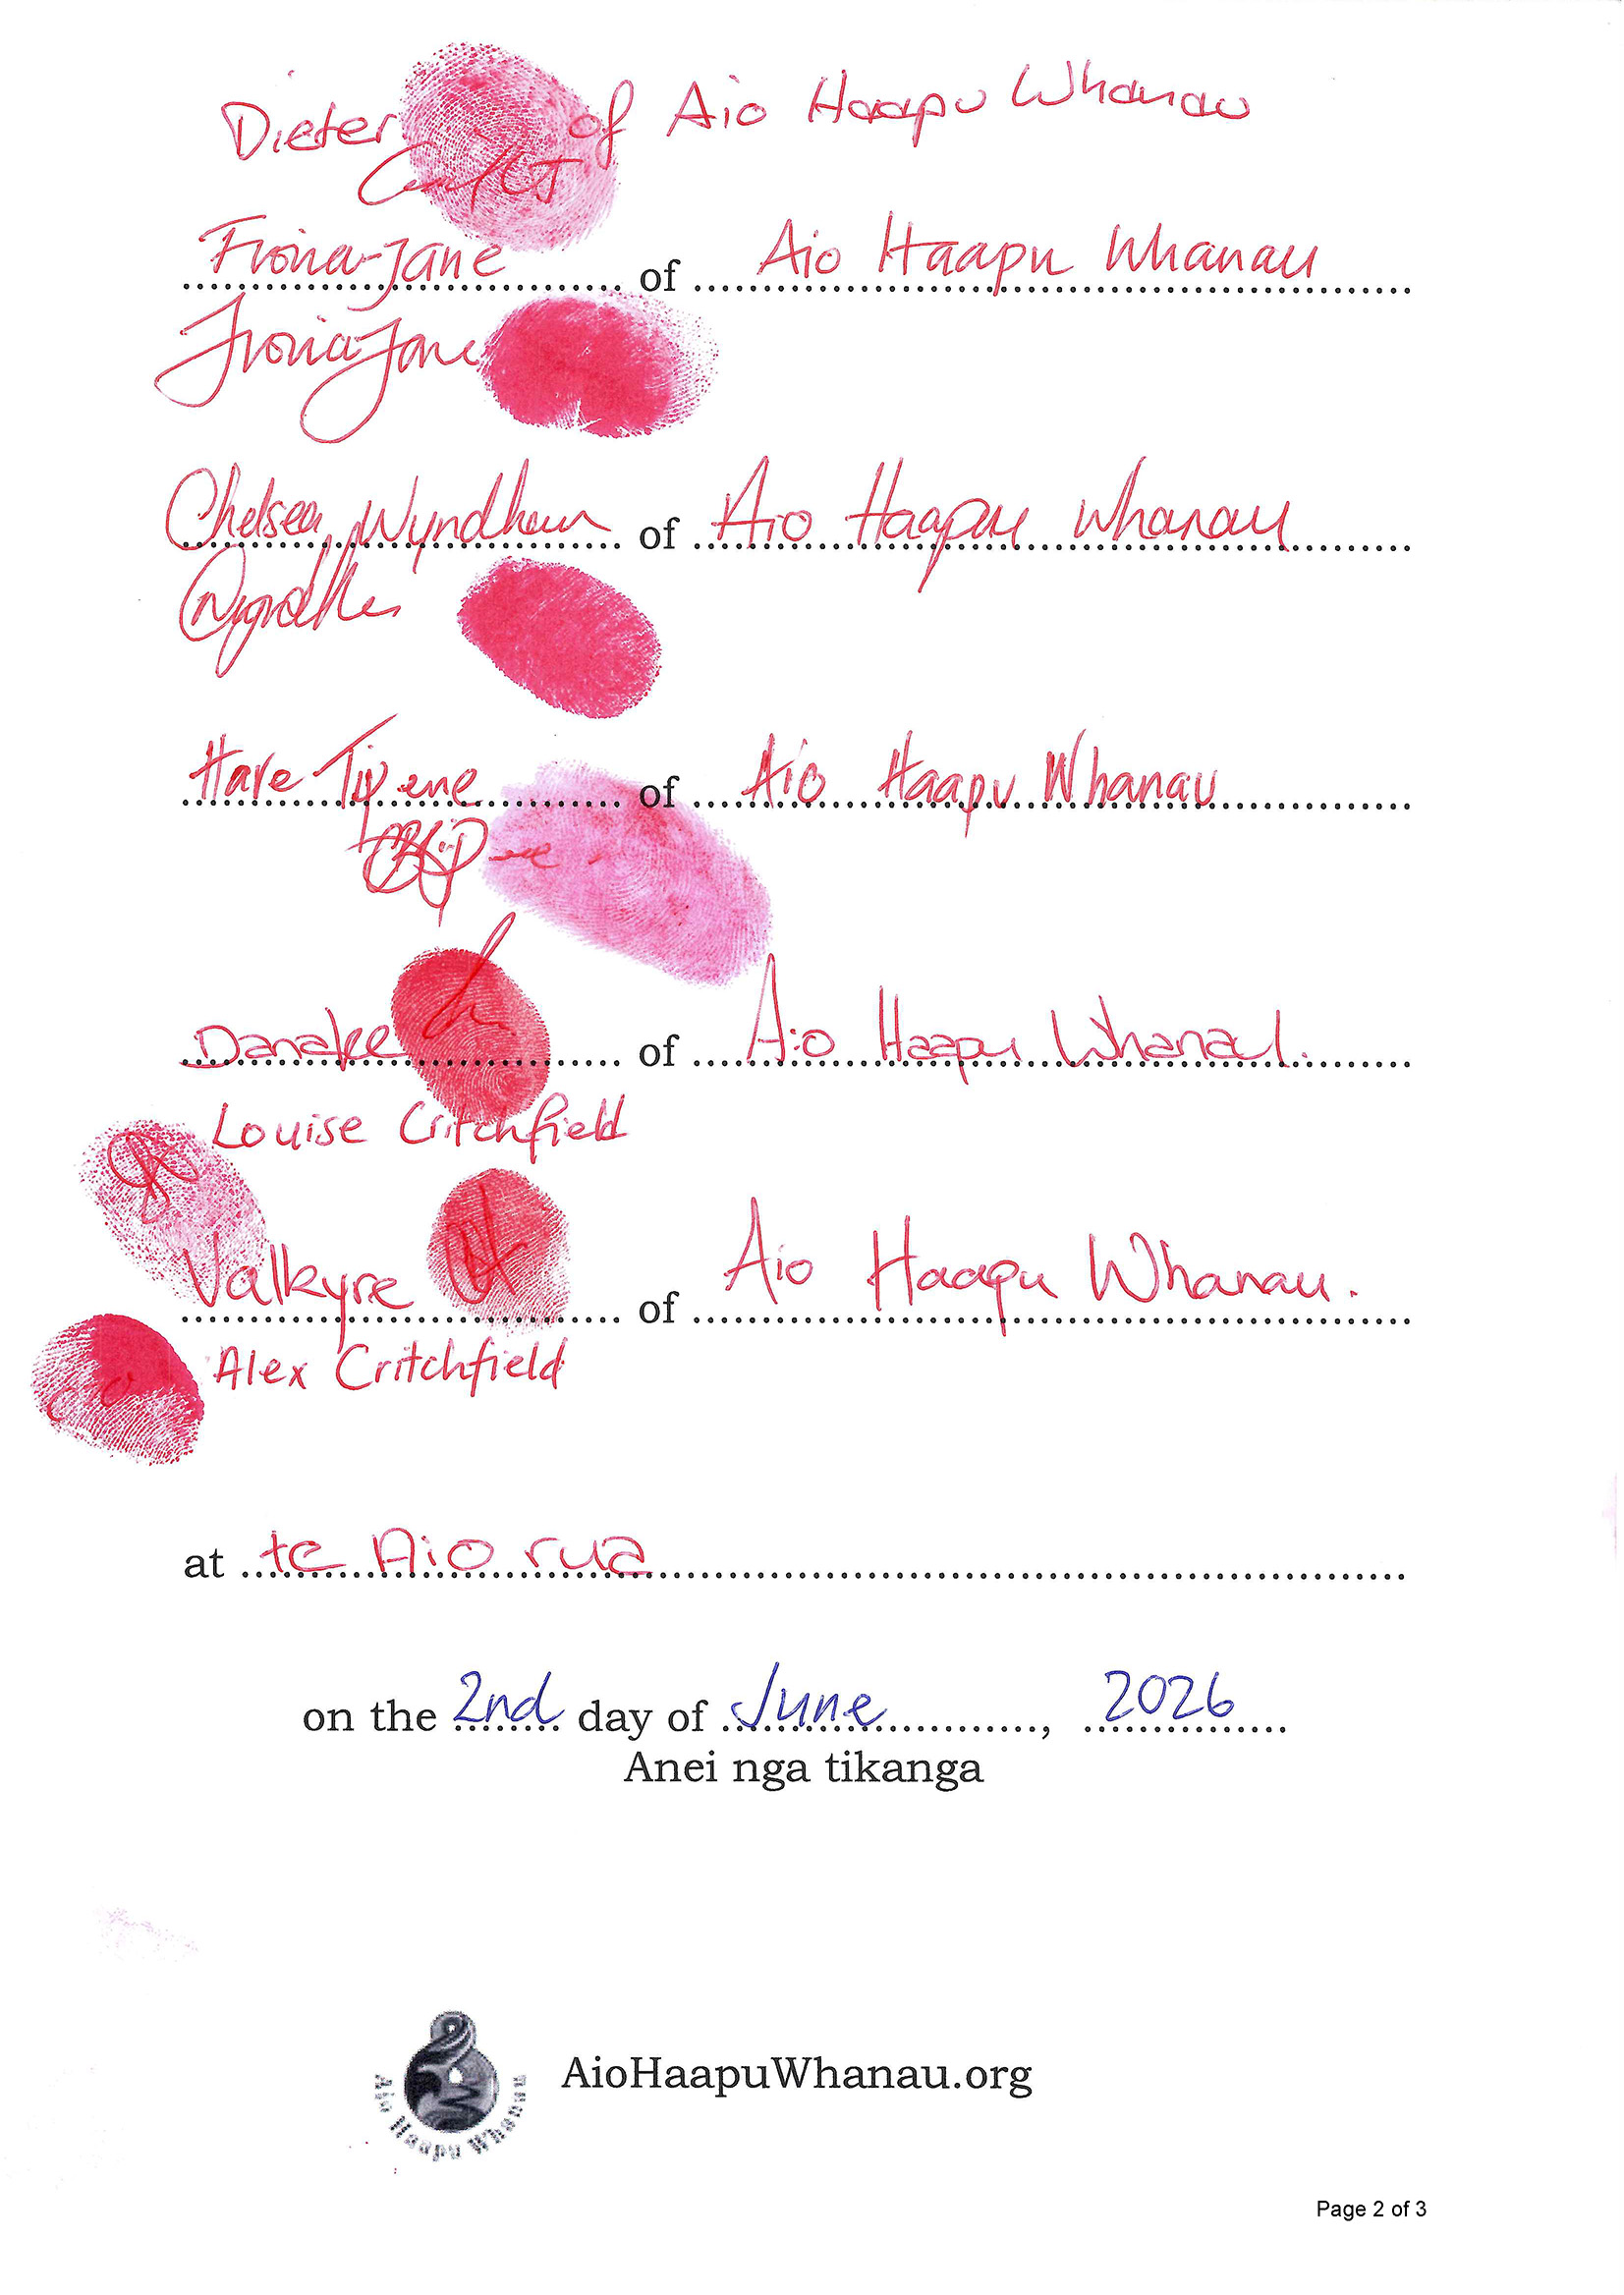 Dieter of Aio Haapu Whanau
Fiona-Jane of Aio Haapu Whanau
Fiona Jane
Chelsea Wyndham of Aio Haapu Whanau
Hare Tipene of Aio Haapu Whanau
Danalee of Aio Haapu Whanau.
Louise Critchfield
Valkyre of Aio Haapu Whanau.
Alex Critchfield
at te Aio rua
on the 2nd day of June, 2026
Anei nga tikanga
Aio Haapu Whanau
AioHaapuWhanau.org
Page 2 of 3